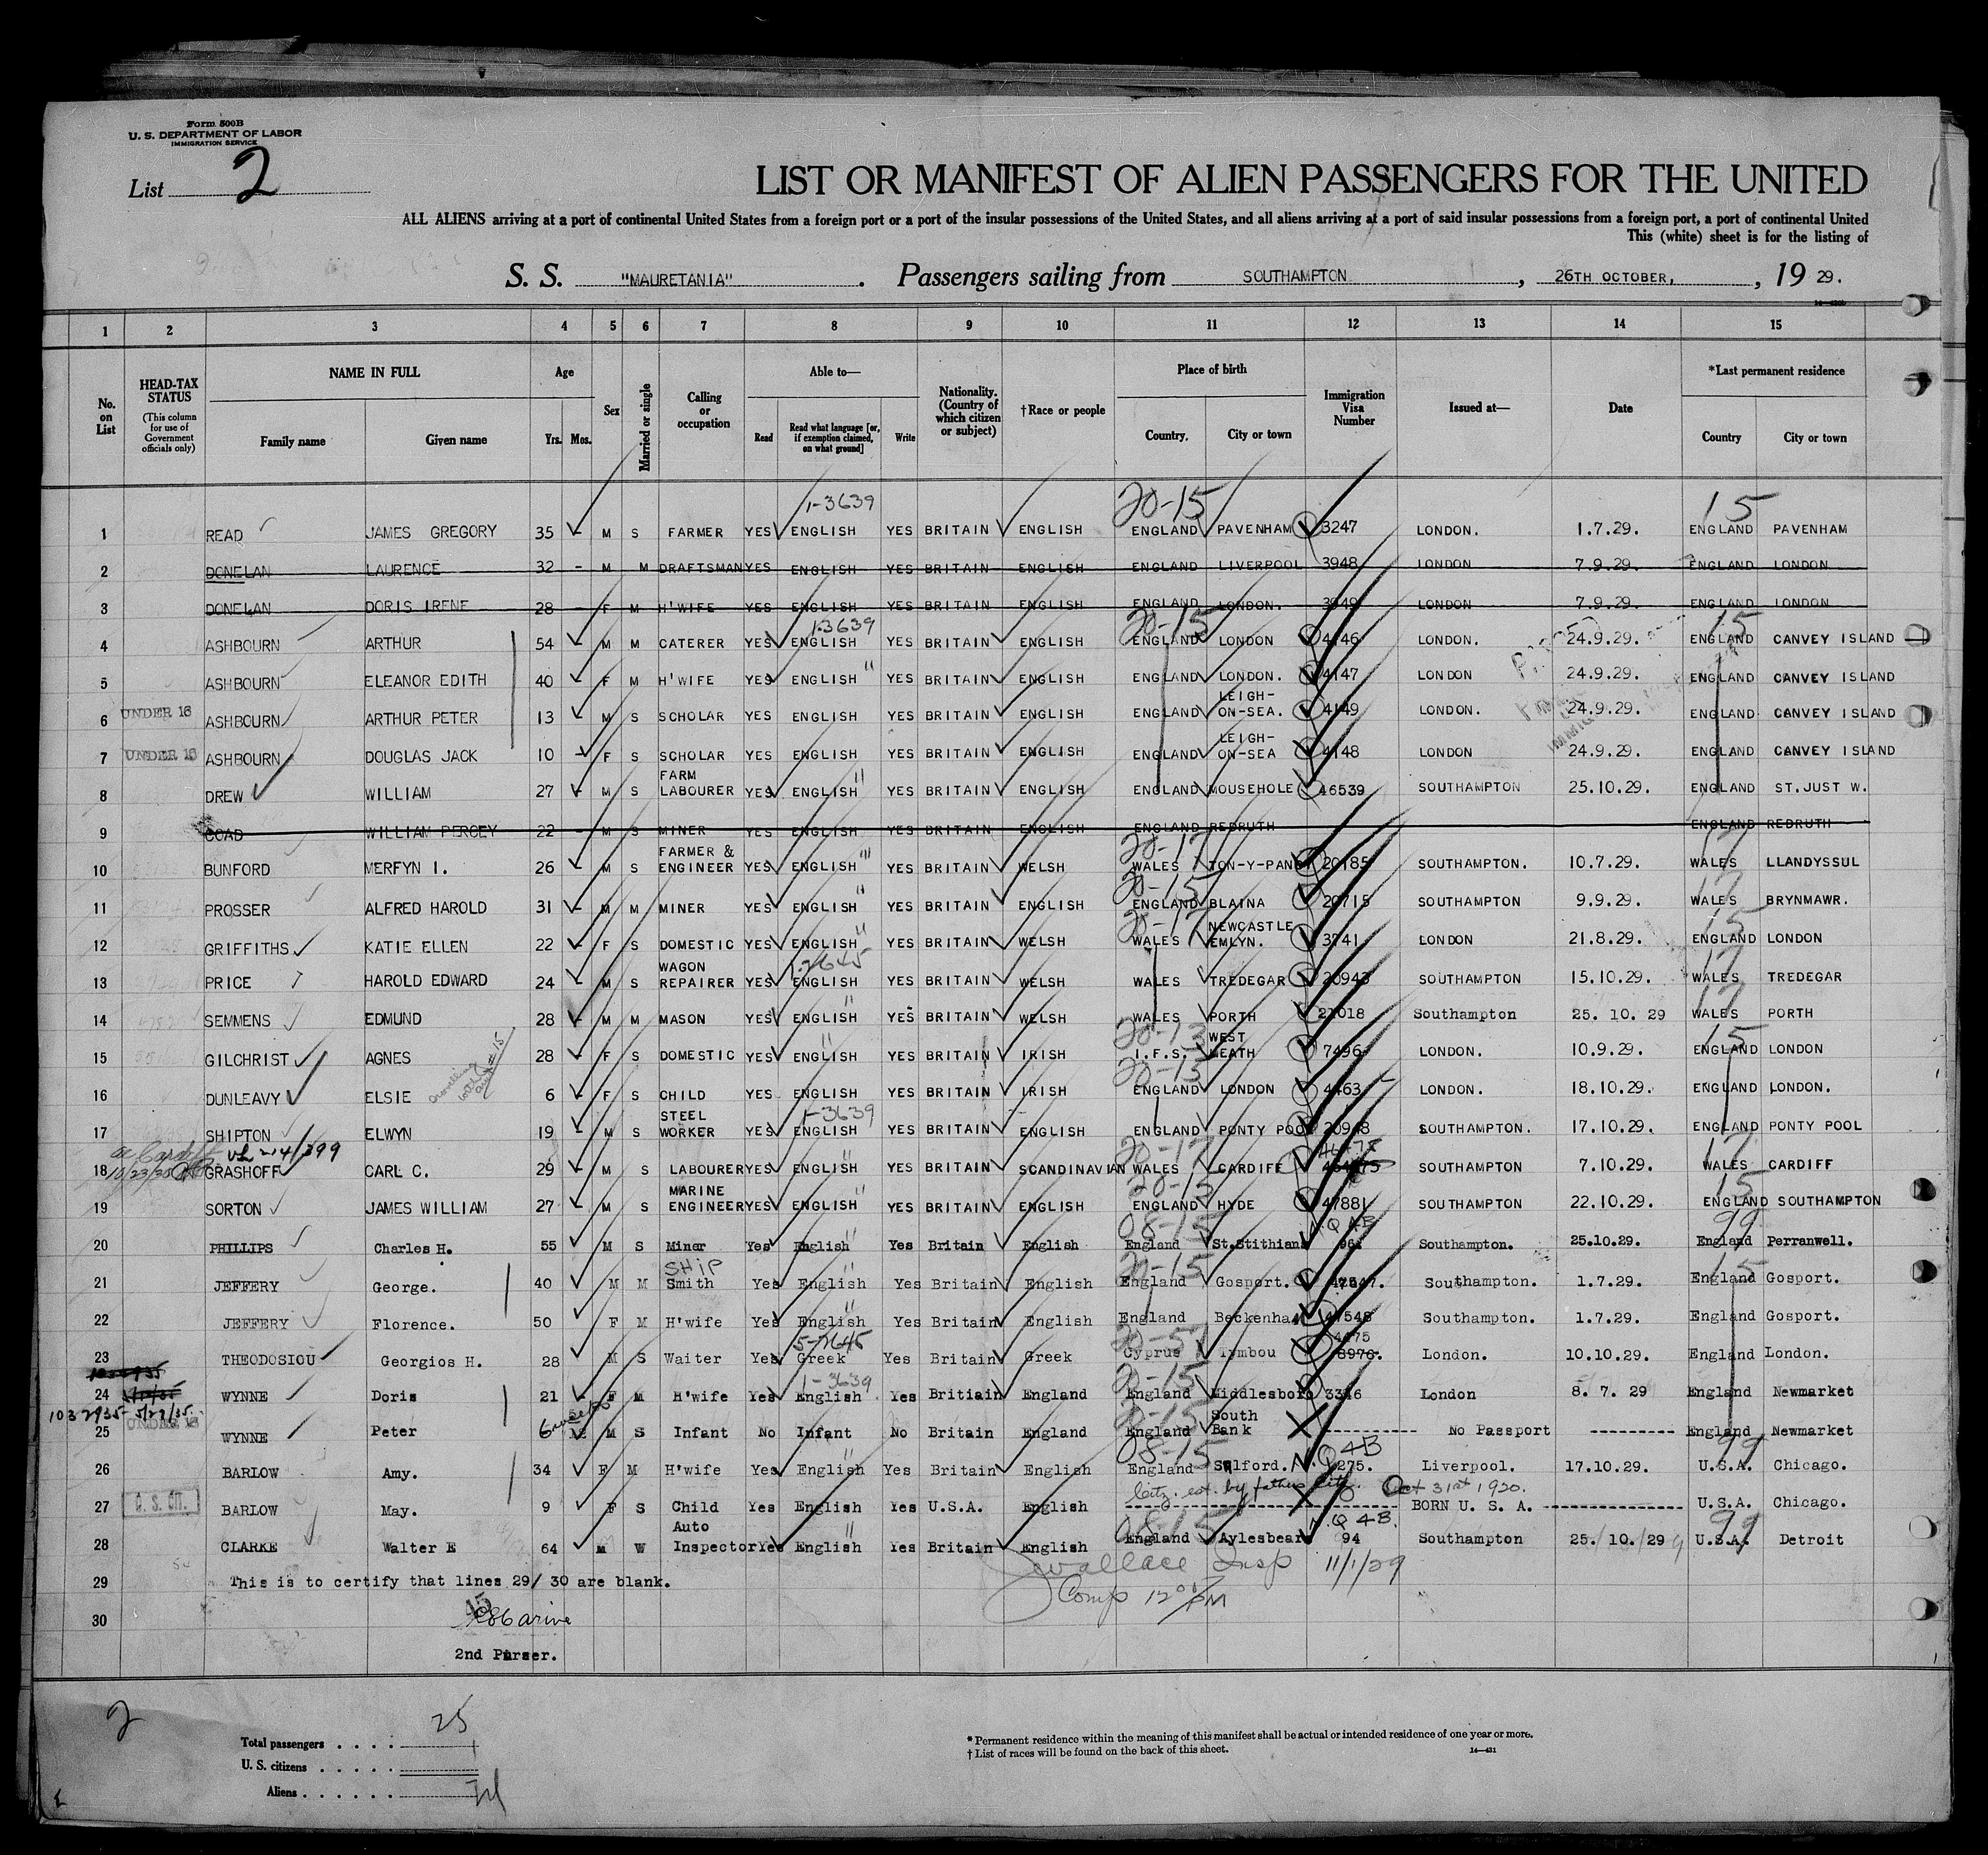 Form 500B
U. S. DEPARTMENT OF LABOR
IMMIGRATION SERVICE
List 2
LIST OR MANIFEST OF ALIEN PASSENGERS FOR THE UNITED
ALL ALIENS arriving at a port of continental United States from a foreign port or a port of the insular possessions of the United States, and all aliens arriving at a port of said insular possessions from a foreign port, a port of continental United
This (white) sheet is for the listing of
S. S. "MAURETANIA". Passengers sailing from SOUTHAMPTON, 26TH OCTOBER, 19 29.
1 2 3 4 5 6 7 8 9 10 11 12 13 14 15
No. on List HEAD-TAX STATUS (This column for use of Government officials only) NAME IN FULL Family name Given name Age Yrs. Mos. Sex Married or single Calling or occupation Able to— Read Read what language [or, if exemption claimed, on what ground] Write Nationality. (Country of which citizen or subject) †Race or people Place of birth Country. City or town Immigration Visa Number Issued at— Date *Last permanent residence Country City or town
1-3639 20-15 15
1 READ JAMES GREGORY 35 - M S FARMER YES ENGLISH YES BRITAIN ENGLISH ENGLAND PAVENHAM 3247 LONDON. 1.7.29. ENGLAND PAVENHAM
2 DONELAN LAURENCE 32 - M M DRAFTSMAN YES ENGLISH YES BRITAIN ENGLISH ENGLAND LIVERPOOL 3948 LONDON 7.9.29. ENGLAND LONDON
3 DONELAN DORIS IRENE 28 - F M H'WIFE YES ENGLISH YES BRITAIN ENGLISH ENGLAND LONDON. 3949 LONDON 7.9.29. ENGLAND LONDON
1-3639 20-15 15
4 ASHBOURN ARTHUR 54 - M M CATERER YES ENGLISH YES BRITAIN ENGLISH ENGLAND LONDON 4146 LONDON. 24.9.29. ENGLAND CANVEY ISLAND
5 ASHBOURN ELEANOR EDITH 40 - F M H'WIFE YES ENGLISH " YES BRITAIN ENGLISH ENGLAND LONDON. 4147 LONDON 24.9.29. ENGLAND CANVEY ISLAND
6 UNDER 16 ASHBOURN ARTHUR PETER 13 - M S SCHOLAR YES ENGLISH YES BRITAIN ENGLISH ENGLAND LEIGH-ON-SEA. 4149 LONDON. 24.9.29. ENGLAND CANVEY ISLAND
7 UNDER 16 ASHBOURN DOUGLAS JACK 10 - F S SCHOLAR YES ENGLISH YES BRITAIN ENGLISH ENGLAND LEIGH-ON-SEA 4148 LONDON 24.9.29. ENGLAND CANVEY ISLAND
8 DREW WILLIAM 27 - M S FARM LABOURER YES ENGLISH " YES BRITAIN ENGLISH ENGLAND MOUSEHOLE 46539 SOUTHAMPTON 25.10.29. ENGLAND ST.JUST W.
9 COAD WILLIAM PERCEY 22 - M S MINER YES ENGLISH YES BRITAIN ENGLISH ENGLAND REDRUTH ENGLAND REDRUTH
20-17 17
10 BUNFORD MERFYN I. 26 - M S FARMER & ENGINEER YES ENGLISH " YES BRITAIN WELSH WALES TON-Y-PAN 20185 SOUTHAMPTON. 10.7.29. WALES LLANDYSSUL
20-15 17
11 PROSSER ALFRED HAROLD 31 - M M MINER YES ENGLISH " YES BRITAIN ENGLISH ENGLAND BLAINA 20715 SOUTHAMPTON 9.9.29. WALES BRYNMAWR.
20-17 15
12 GRIFFITHS KATIE ELLEN 22 - F S DOMESTIC YES ENGLISH " YES BRITAIN WELSH WALES NEWCASTLE EMLYN. 3741 LONDON 21.8.29. ENGLAND LONDON
1-2645 17
13 PRICE HAROLD EDWARD 24 - M S WAGON REPAIRER YES ENGLISH YES BRITAIN WELSH WALES TREDEGAR 20943 SOUTHAMPTON 15.10.29. WALES TREDEGAR
17
14 SEMMENS EDMUND 28 - M M MASON YES ENGLISH " YES BRITAIN WELSH WALES PORTH 21018 Southampton 25. 10. 29 WALES PORTH
20-13 15
15 GILCHRIST AGNES 28 - F S DOMESTIC YES ENGLISH " YES BRITAIN IRISH I.F.S. WEST MEATH 7496 LONDON. 10.9.29. ENGLAND LONDON
travelling with aunt #15 20-15
16 DUNLEAVY ELSIE 6 - F S CHILD YES ENGLISH YES BRITAIN IRISH ENGLAND LONDON 4463 LONDON. 18.10.29. ENGLAND LONDON.
1-3639
17 SHIPTON ELWYN 19 - M S STEEL WORKER YES ENGLISH YES BRITAIN ENGLISH ENGLAND PONTY POOL 20948 SOUTHAMPTON. 17.10.29. ENGLAND PONTY POOL
20-17 17
18 10/23/35 GRASHOFF CARL C. 29 - M S LABOURER YES ENGLISH " YES BRITAIN SCANDINAVIAN WALES CARDIFF SOUTHAMPTON 7.10.29. WALES CARDIFF
20-15 15
19 SORTON JAMES WILLIAM 27 - M S MARINE ENGINEER YES ENGLISH " YES BRITAIN ENGLISH ENGLAND HYDE 47881 SOUTHAMPTON 22.10.29. ENGLAND SOUTHAMPTON
08-15 N.Q 4B 99
20 PHILLIPS Charles H. 55 M S Miner Yes English " Yes Britain English England St.Stithians Southampton. 25.10.29. England Perranwell.
SHIP 20-15 15
21 JEFFERY George. 40 M M Smith Yes English Yes Britain English England Gosport. 47547. Southampton. 1.7.29. England Gosport.
22 JEFFERY Florence. 50 F M H'wife Yes English " Yes Britain English England Beckenham 47548 Southampton. 1.7.29. England Gosport.
5-2645 20-57 4475
23 THEODOSIOU Georgios H. 28 M S Waiter Yes Greek Yes Britain Greek Cyprus Tymbou 8976. London. 10.10.29. England London.
1-3639 20-15
24 WYNNE Doris 21 - F M H'wife Yes English Yes Britiain England England Middlesboro 3346 London 8. 7. 29 England Newmarket
103 2935 5/29/35. 20-15
25 UNDER 16 WYNNE Peter 6 weeks M S Infant No Infant No Britain England England South Bank X No Passport England Newmarket
08-15 N.Q 4B 99
26 BARLOW Amy. 34 F M H'wife Yes English " Yes Britain English England Salford. 275. Liverpool. 17.10.29. U.S.A. Chicago.
Citz. est. by father's citz. Oct 31st 1920.
27 U. S. CIT. BARLOW May. 9 F S Child Yes English Yes U.S.A. English BORN U. S. A. U.S.A. Chicago.
08-15 N.Q 4B. 99
28 CLARKE Walter E 64 M W Auto Inspector Yes English " Yes Britain English England Aylesbear 94 Southampton 25/ 10/29 U.S.A. Detroit
Wallace Insp 11/1/29
29 This is to certify that lines 29/ 30 are blank.
Comp 12 PM
30
2nd Purser.
2
Total passengers . . . . 25
U. S. citizens . . . . . 1
Aliens . . . . . . 24
* Permanent residence within the meaning of this manifest shall be actual or intended residence of one year or more.
† List of races will be found on the back of this sheet.
14—431